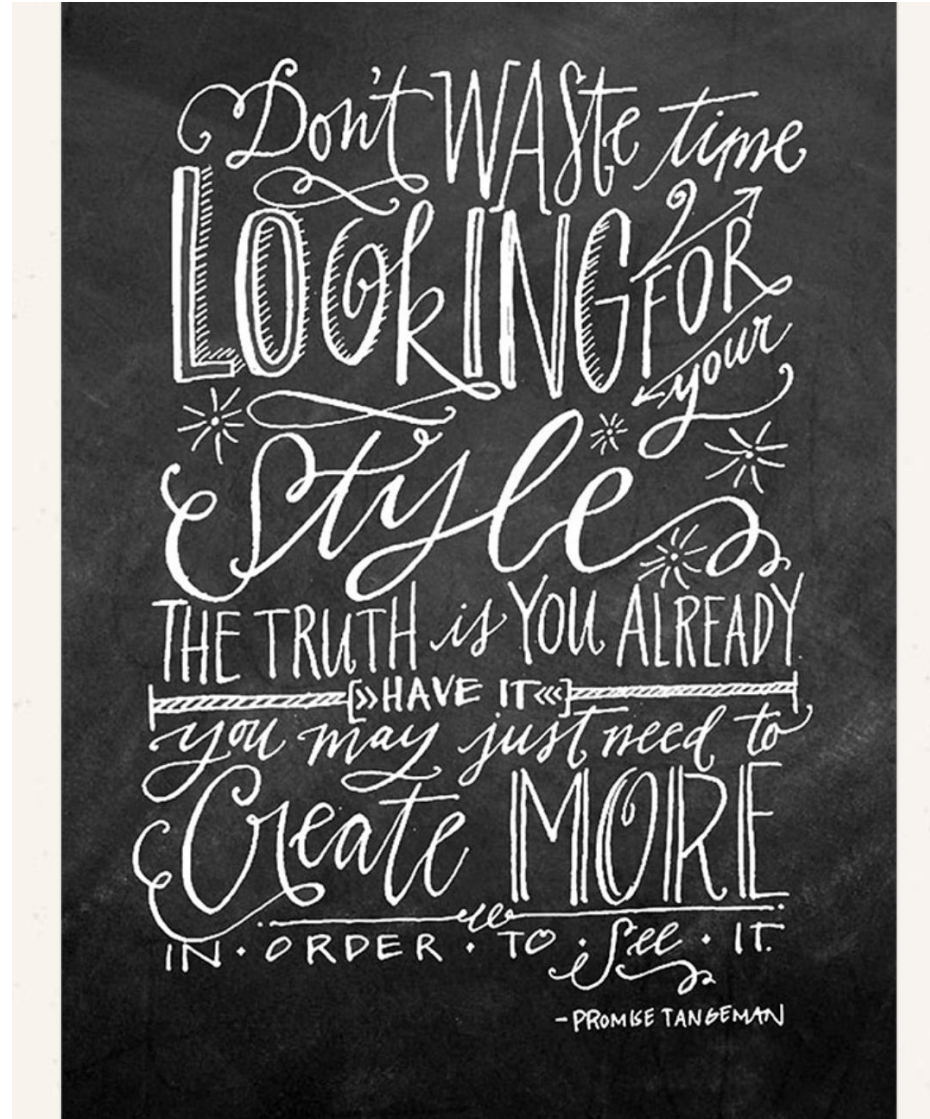 Don't WASte time
LOOkING FOR
your
Style
THE TRUTH is YOU ALREADY
[»HAVE IT«]
you may just need to
Create MORE
IN · ORDER · TO · See · IT.
-PROMISE TANGEMAN